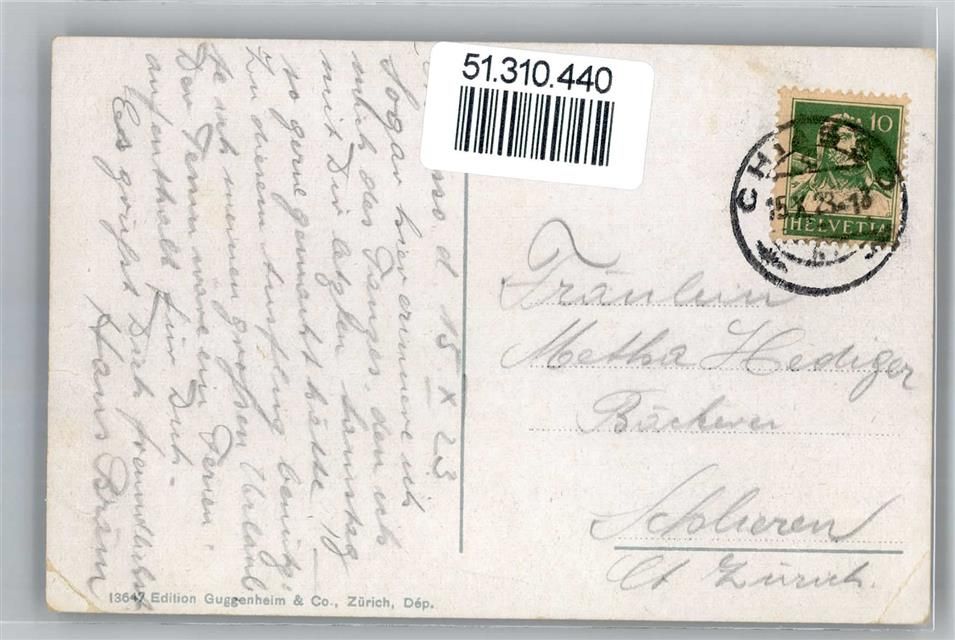 51.310.440
10
HELVETIA
CHIASSO
15.X.23-1
d. 15. X 23
Sogar hier erinnere ich
mich des Tanzes, den ich
mit Dir letzten Samstag
so gerne gemacht hätte
Zu diesem Ausflug benütz-
te ich meinen großen Urlaub
Der Tessin wäre ein Ferien-
aufenthalt für Dich.
Es grüßt Dich freundlichst
Hans
Fräulein
Metha Hediger
Bäckerei
Schlieren
Ct Zürich.
13647 Edition Guggenheim & Co., Zürich, Dép.